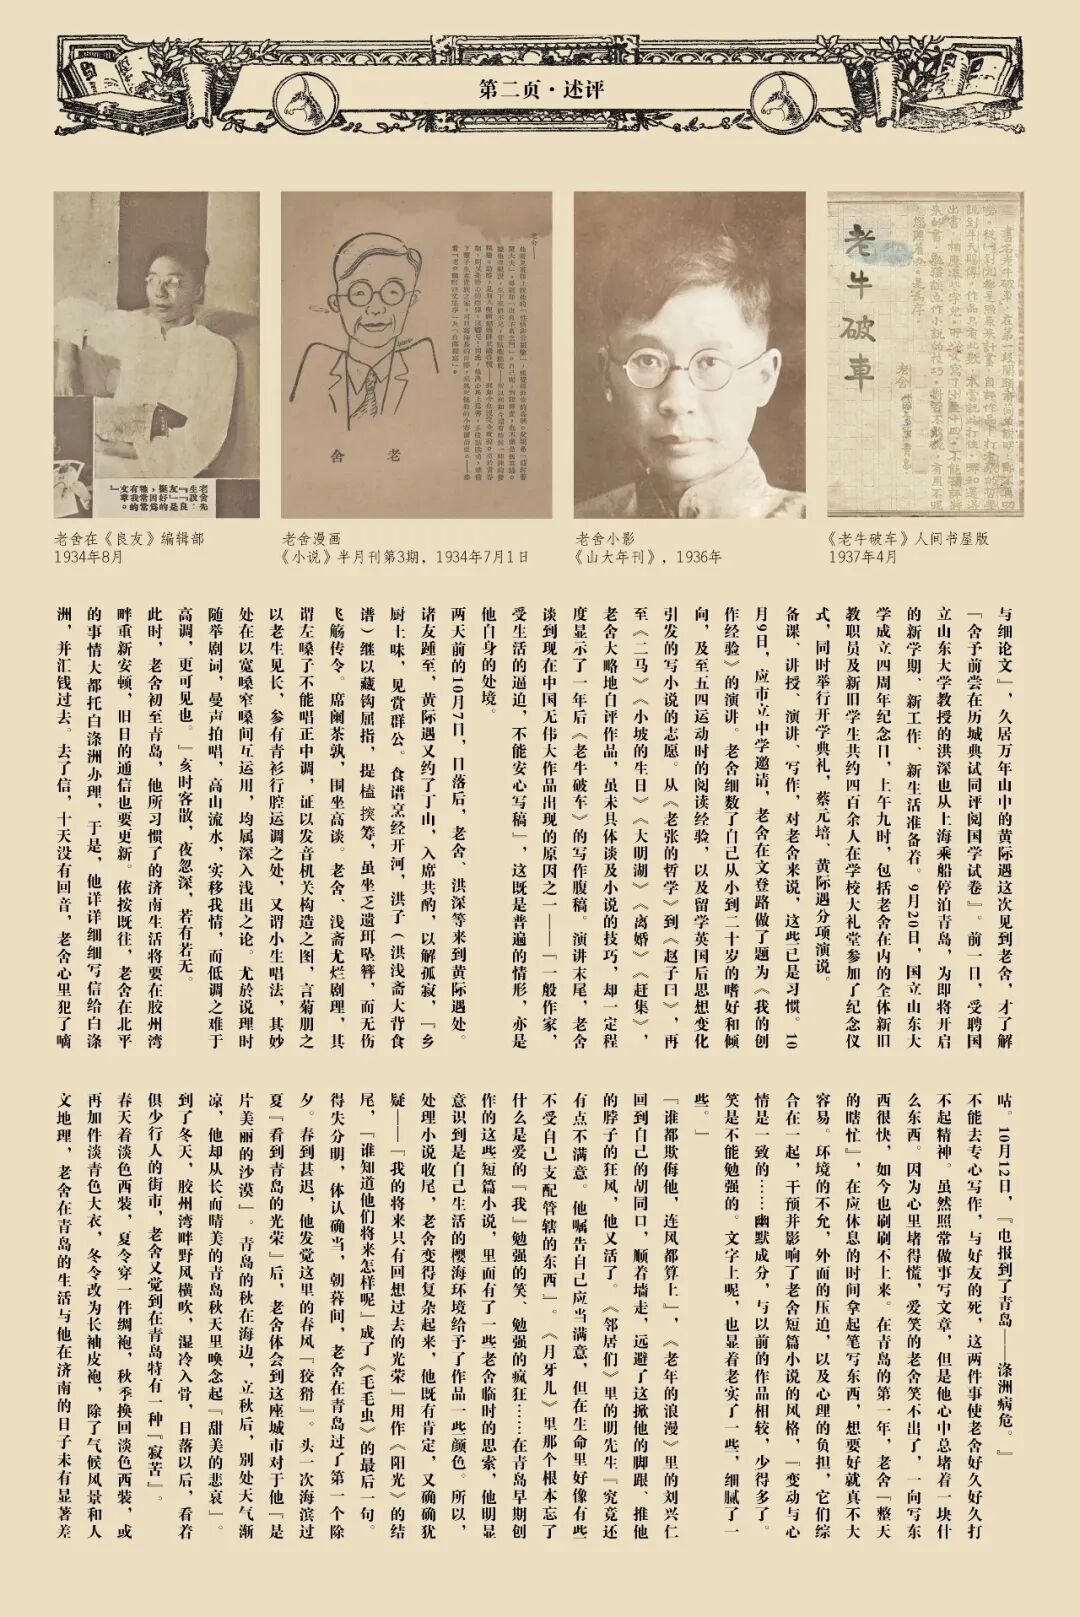 第二页·述评
老牛破車
老舍
老舍
老舍在《良友》编辑部
1934年8月
老舍漫画
《小说》半月刊第3期，1934年7月1日
老舍小影
《山大年刊》，1936年
《老牛破车》人间书屋版
1937年4月
与细论文』，久居万年山中的黄际遇这次见到老舍，才了解
「舍予前尝在历城典试同评阅国学试卷」。前一日，受聘国
立山东大学教授的洪深也从上海乘船停泊青岛，为即将开启
的新学期、新工作、新生活准备着。9月20日，国立山东大
学成立四周年纪念日，上午九时，包括老舍在内的全体新旧
教职员及新旧学生共约四百余人在学校大礼堂参加了纪念仪
式，同时举行开学典礼，蔡元培、黄际遇分项演说。
备课、讲授、演讲、写作，对老舍来说，这些已是习惯。10
月9日，应市立中学邀请，老舍在文登路做了题为《我的创
作经验》的演讲。老舍细数了自己从小到二十岁的嗜好和倾
向，及至五四运动时的阅读经验，以及留学英国后思想变化
引发的写小说的志愿。从《老张的哲学》到《赵子曰》，再
至《二马》《小坡的生日》《大明湖》《离婚》《赶集》，
老舍大略地自评作品，虽未具体谈及小说的技巧，却一定程
度显示了一年后《老牛破车》的写作腹稿。演讲末尾，老舍
谈到现在中国无伟大作品出现的原因之一——「一般作家，
受生活的逼迫，不能安心写稿」，这既是普遍的情形，亦是
他自身的处境。
两天前的10月7日，日落后，老舍、洪深等来到黄际遇处。
诸友踵至，黄际遇又约了丁山，入席共酌，以解孤寂，『乡
厨上味，见赏群公。食谱烹经开河，洪子（洪浅斋大背食
谱）继以藏钩屈指，提榼揳筹，虽坐乏遗珥坠簪，而无伤
飞觞传令。席阑茶孰，围坐高谈。老舍、浅斋尤烂剧理，其
谓左嗓子不能唱正中调，证以发音机关构造之图，言菊朋之
以老生见长，参有青衫行腔运调之处，又谓小生唱法，其妙
处在以宽嗓窄嗓间互运用，均属深入浅出之论。尤於说理时
随举剧词，曼声拍唱，高山流水，实移我情，而低调之难于
高调，更可见也。』亥时客散，夜忽深，若有若无。
此时，老舍初至青岛，他所习惯了的济南生活将要在胶州湾
畔重新安顿，旧日的通信也要更新。依按既往，老舍在北平
的事情大都托白涤洲办理，于是，他详详细细写信给白涤
洲，并汇钱过去。去了信，十天没有回音，老舍心里犯了嘀
咕。10月12日，『电报到了青岛——涤洲病危。』
不能去专心写作，与好友的死，这两件事使老舍好久好久打
不起精神。虽然照常做事写文章，但是他心中总堵着一块什
么东西。因为心里堵得慌，爱笑的老舍笑不出了，一向写东
西很快，如今也刷刷不上来。在青岛的第一年，老舍『整天
的瞎忙』，在应休息的时间拿起笔写东西，想要好就真不大
容易。环境的不允，外面的压迫，以及心理的负担，它们综
合在一起，干预并影响了老舍短篇小说的风格，『变动与心
情是一致的……幽默成分，与以前的作品相较，少得多了。
笑是不能勉强的。文字上呢，也显着老实了一些，细腻了一
些。』
『谁都欺侮他，连风都算上』，《老年的浪漫》里的刘兴仁
回到自己的胡同口，顺着墙走，远避了这掀他的脚跟、推他
的脖子的狂风，他又活了。《邻居们》里的明先生『究竟还
有点不满意。他嘱告自己应当满意，但在生命里好像有些
不受自己支配管辖的东西』。《月牙儿》里那个根本忘了
什么是爱的『我』勉强的笑、勉强的疯狂……在青岛早期创
作的这些短篇小说，里面有了一些老舍临时的思索，他明显
意识到是自己生活的樱海环境给予了作品一些颜色。所以，
处理小说收尾，老舍变得复杂起来，他既有肯定，又确确犹
疑——『我的将来只有回想过去的光荣』用作《阳光》的结
尾，『谁知道他们将来怎样呢』成了《毛毛虫》的最后一句。
得失分明，体认确当，朝暮间，老舍在青岛过了第一个除
夕。春到甚迟，他发觉这里的春风『狡猾』。头一次海滨过
夏『看到青岛的光荣』后，老舍体会到这座城市对于他『是
片美丽的沙漠』。青岛的秋在海边，立秋后，别处天气渐
凉，他却从长而晴美的青岛秋天里唤念起『甜美的悲哀』。
到了冬天，胶州湾畔野风横吹，湿冷入骨，日落以后，看着
俱少行人的街市，老舍又觉到在青岛特有一种『寂苦』。
春天着淡色西装，夏令穿一件绸袍，秋季换回淡色西装，或
再加件淡青色大衣，冬令改为长袖皮袍，除了气候风景和人
文地理，老舍在青岛的生活与他在济南的日子未有显著差